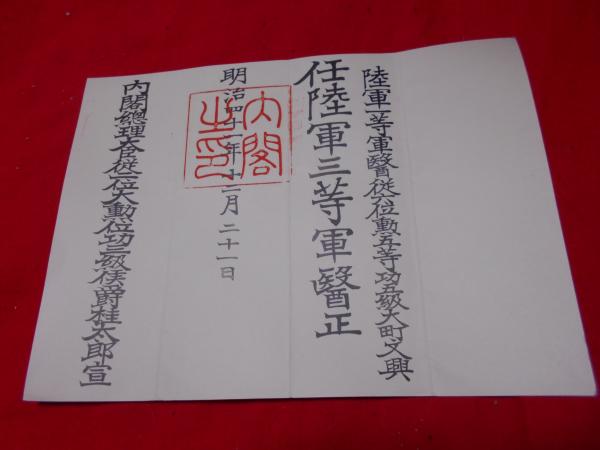 陸軍一等軍醫從六位勲五等功五級大町文興
任陸軍三等軍醫正
明治四十一年十二月二十一日
內閣總理大臣從二位大勲位功三級侯爵桂太郎宣
內閣之印